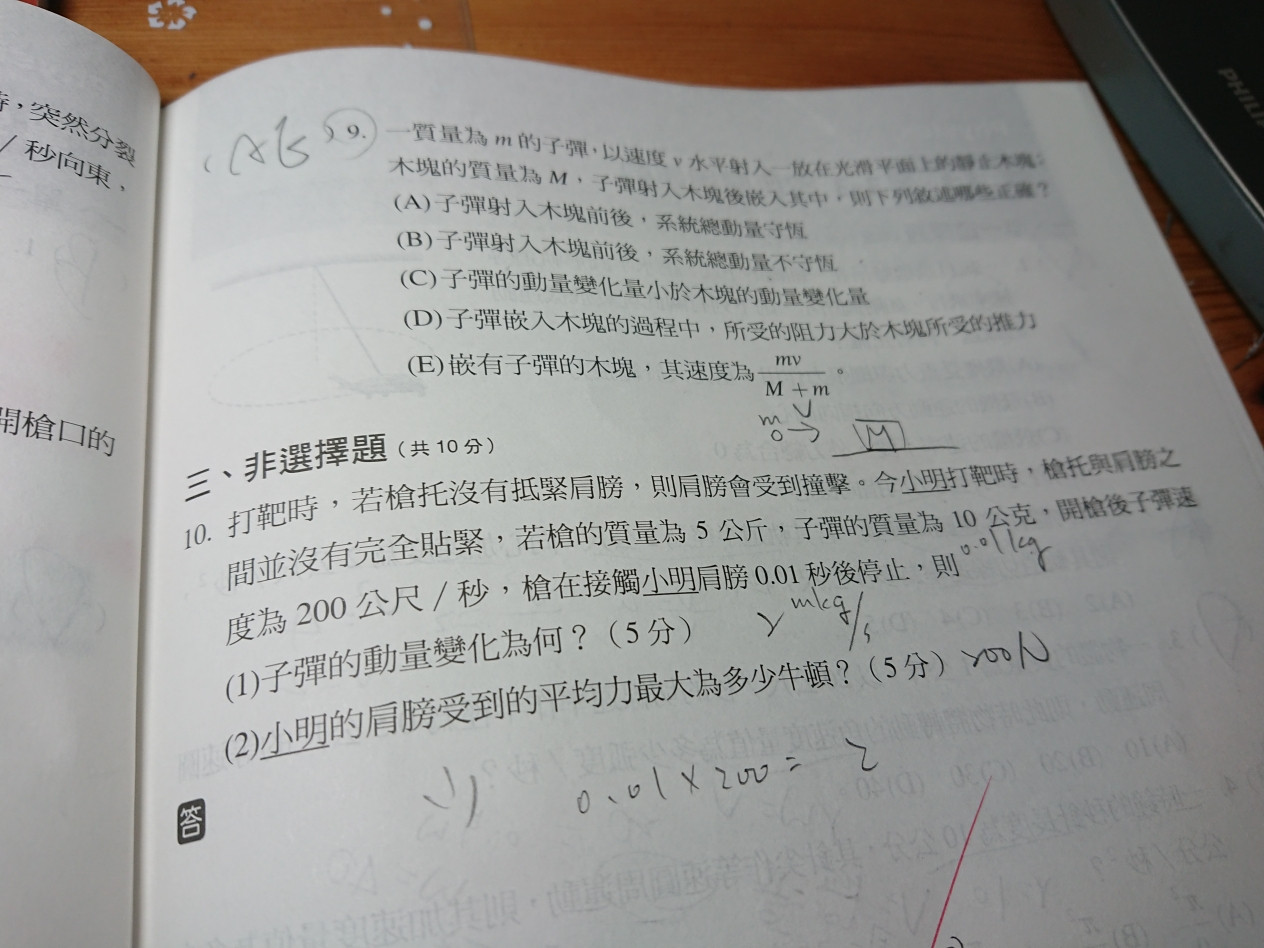 時，突然分裂
/ 秒向東，
開槍口的
(AE) 9. 一質量為 m 的子彈，以速度 v 水平射入一放在光滑平面上的靜止木塊；
木塊的質量為 M，子彈射入木塊後嵌入其中，則下列敘述哪些正確？
(A)子彈射入木塊前後，系統總動量守恆
(B)子彈射入木塊前後，系統總動量不守恆
(C)子彈的動量變化量小於木塊的動量變化量
(D)子彈嵌入木塊的過程中，所受的阻力大於木塊所受的推力
(E)嵌有子彈的木塊，其速度為 mv / M + m 。
m v M
三、非選擇題（共 10 分）
10. 打靶時，若槍托沒有抵緊肩膀，則肩膀會受到撞擊。今小明打靶時，槍托與肩膀之
間並沒有完全貼緊，若槍的質量為 5 公斤，子彈的質量為 10 公克，開槍後子彈速
0.01kg
度為 200 公尺 / 秒，槍在接觸小明肩膀 0.01 秒後停止，則
(1)子彈的動量變化為何？（5 分） 2 mkg/s
(2)小明的肩膀受到的平均力最大為多少牛頓？（5 分） 200N
(1) 0.01 × 200 = 2
答
PHILI